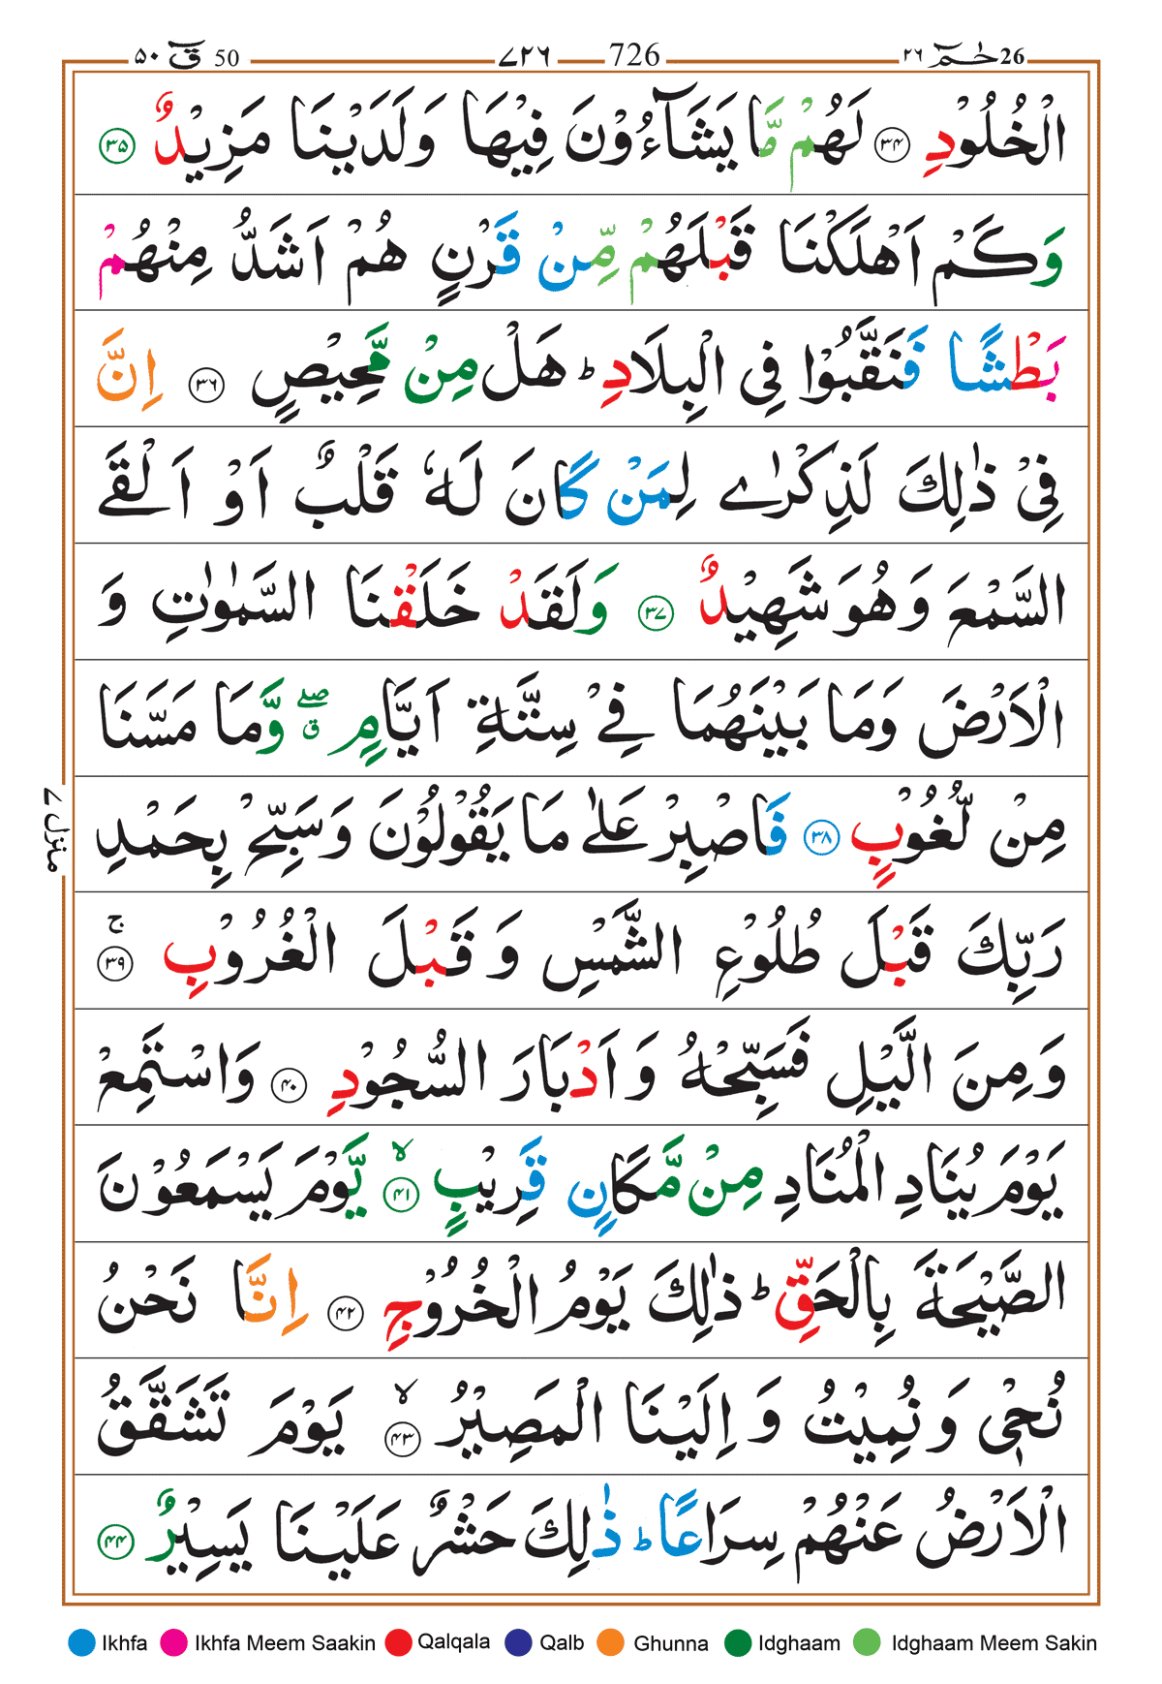 50 قٓ ۵۰
726 ۷۲۶
26 حٰمٓ ۲۶
الْخُلُوْدِ ۳۴ لَهُمْ مَّا يَشَآءُوْنَ فِيْهَا وَلَدَيْنَا مَزِيْدٌ ۳۵
وَكَمْ اَهْلَكْنَا قَبْلَهُمْ مِّنْ قَرْنٍ هُمْ اَشَدُّ مِنْهُمْ
بَطْشًا فَنَقَّبُوْا فِى الْبِلَادِ ؕ هَلْ مِنْ مَّحِيْصٍ ۳۶ اِنَّ
فِىْ ذٰلِكَ لَذِكْرٰى لِمَنْ كَانَ لَهٗ قَلْبٌ اَوْ اَلْقَى
السَّمْعَ وَهُوَ شَهِيْدٌ ۳۷ وَلَقَدْ خَلَقْنَا السَّمٰوٰتِ وَ
الْاَرْضَ وَمَا بَيْنَهُمَا فِىْ سِتَّةِ اَيَّامٍ ۖق وَّمَا مَسَّنَا
مِنْ لُّغُوْبٍ ۳۸ فَاصْبِرْ عَلٰى مَا يَقُوْلُوْنَ وَسَبِّحْ بِحَمْدِ
رَبِّكَ قَبْلَ طُلُوْعِ الشَّمْسِ وَ قَبْلَ الْغُرُوْبِ ۚ ۳۹
وَمِنَ الَّيْلِ فَسَبِّحْهُ وَ اَدْبَارَ السُّجُوْدِ ۴۰ وَاسْتَمِعْ
يَوْمَ يُنَادِ الْمُنَادِ مِنْ مَّكَانٍ قَرِيْبٍ ۙ ۴۱ يَّوْمَ يَسْمَعُوْنَ
الصَّيْحَةَ بِالْحَقِّ ؕ ذٰلِكَ يَوْمُ الْخُرُوْجِ ۴۲ اِنَّا نَحْنُ
نُحْىٖ وَ نُمِيْتُ وَ اِلَيْنَا الْمَصِيْرُ ۙ ۴۳ يَوْمَ تَشَقَّقُ
الْاَرْضُ عَنْهُمْ سِرَاعًا ؕ ذٰلِكَ حَشْرٌ عَلَيْنَا يَسِيْرٌ ۴۴
منزل ۷
Ikhfa Ikhfa Meem Saakin Qalqala Qalb Ghunna Idghaam Idghaam Meem Sakin